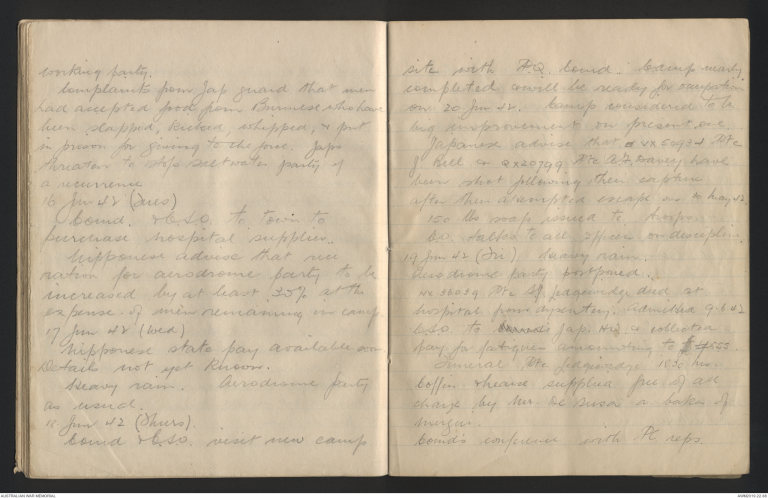 working party.
Complaints from Jap guard that men
had accepted food from Burmese who have
been slapped, kicked, whipped, & put
in prison for giving to the force. Japs
threaten to stop saltwater party if
a recurrence
16 Jun 42 (Tues)
Comd. & C.S.O. to town to
purchase hospital supplies.
Nipponese advise that rice
ration for aerodrome party to be
increased by at least 35% at the
expense of men remaining in camp
17 Jun 42 (Wed)
Nipponese state pay available soon
Details not yet known.
Heavy rain. Aerodrome party
as usual.
18 Jun 42 (Thurs)
Comd & C.S.O. visit new camp
site with H.Q. Comd. Camp nearly
completed & will be ready for occupation
on 20 Jun 42. Camp considered to be
big improvement on present one.
Japanese advise that VX50934 Pte
J Bell & QX20799 Pte A.J. Davey have
been shot following their capture
after their attempted escape on May 42.
150 lbs soap issued to troops.
C.O. talks to all officers on discipline.
19 Jun 42 (Fri) Heavy rain.
Aerodrome party postponed.
Pte Ledgeridge died at
hospital from dysentery. Admitted 9-6-42
C.S.O. to Jap. H.Q. & collected
pay for fatigues amounting to
Funeral Pte Ledgeridge 1630 hrs
Coffin & hearse supplied free of all
charge by Mr. De Busa a baker of
Mergui.
Comd's conference with reps.